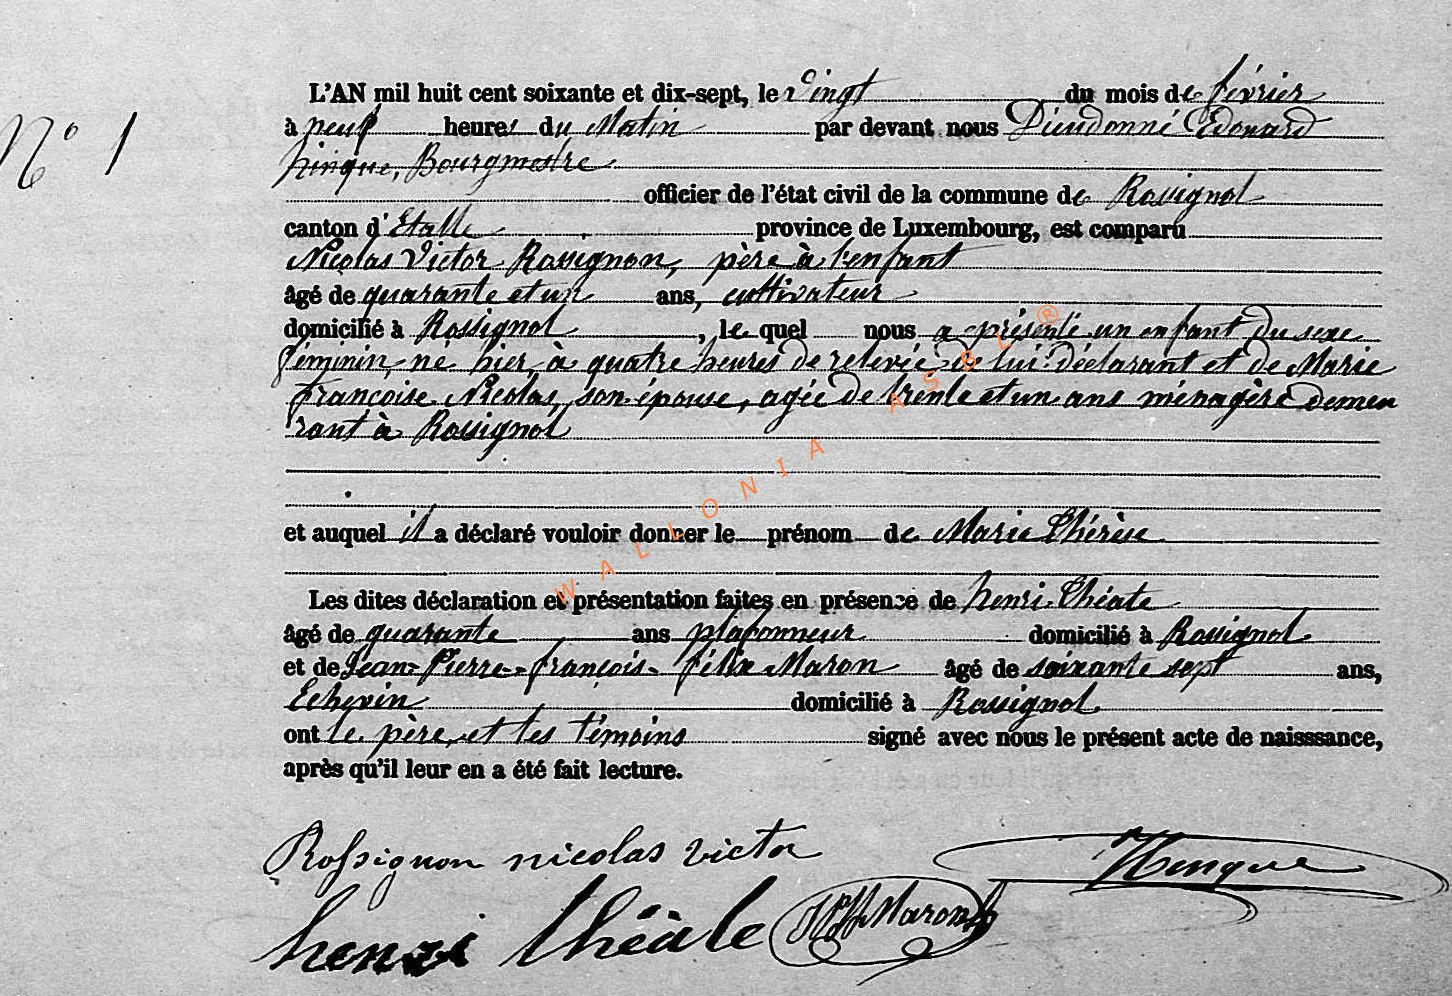 N° 1
L'AN mil huit cent soixante et dix-sept, le vingt du mois de février
à neuf heures du Matin par devant nous Dieudonné Edouard
hinque, Bourgmestre
officier de l'état civil de la commune de Rossignol
canton d'Etalle province de Luxembourg, est comparu
Nicolas Victor Rossignon, père à l'enfant
âgé de quarante et un ans, cultivateur
domicilié à Rossignol, le quel nous a présenté un enfant Du sexe
féminin, né hier, à quatre heures de relevée de lui Déclarant et de Marie
françoise Nicolas, son épouse, agée de trente et un ans ménagère demeu
rant à Rossignol
et auquel il a déclaré vouloir donner le prénom de Marie Thérèse
Les dites déclaration et présentation faites en présence de henri Théate
âgé de quarante ans plafonneur domicilié à Rossignol
et de Jean-Pierre-françois-félix Maron âgé de soixante sept ans,
Echevin domicilié à Rossignol
ont le père et les témoins signé avec nous le présent acte de naisssance,
après qu'il leur en a été fait lecture.
Rossignon nicolas victor
Hinque
henri théate
Maron
WALLONIA ASBL ®